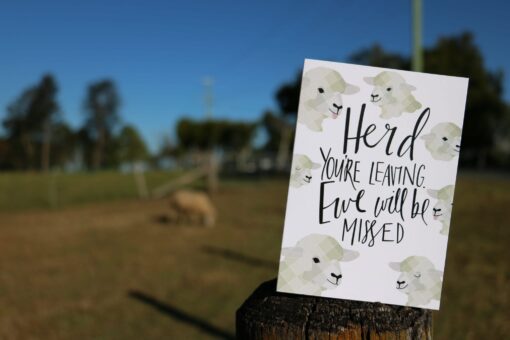 Herd
YOU'RE LEAVING.
Ewe will be
MISSED